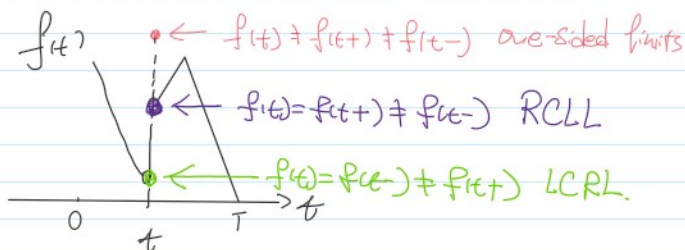 f(t)
f(t) ≠ f(t+) ≠ f(t-) one-sided limits
f(t) = f(t+) ≠ f(t-) RCLL
f(t) = f(t-) ≠ f(t+) LCRL.
0 t T t